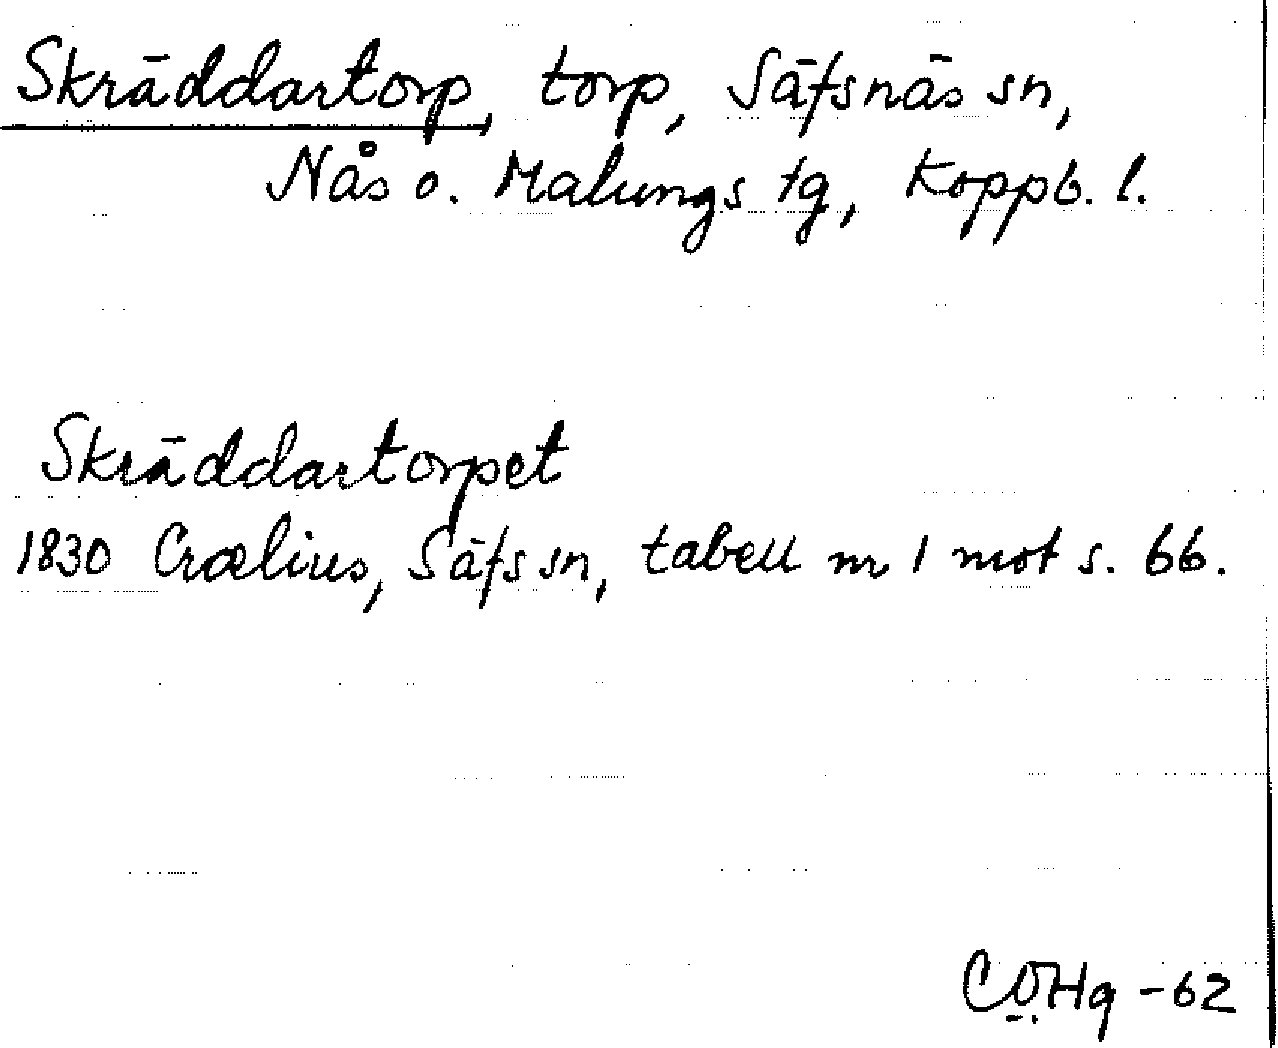 Skräddartorp, torp, Säfsnäs sn,
Nås o. Malungs tg, Koppb. l.
Skräddartorpet
1830 Crælius, Säfs sn, tabell nr 1 mot s. 66.
CÖHg -62